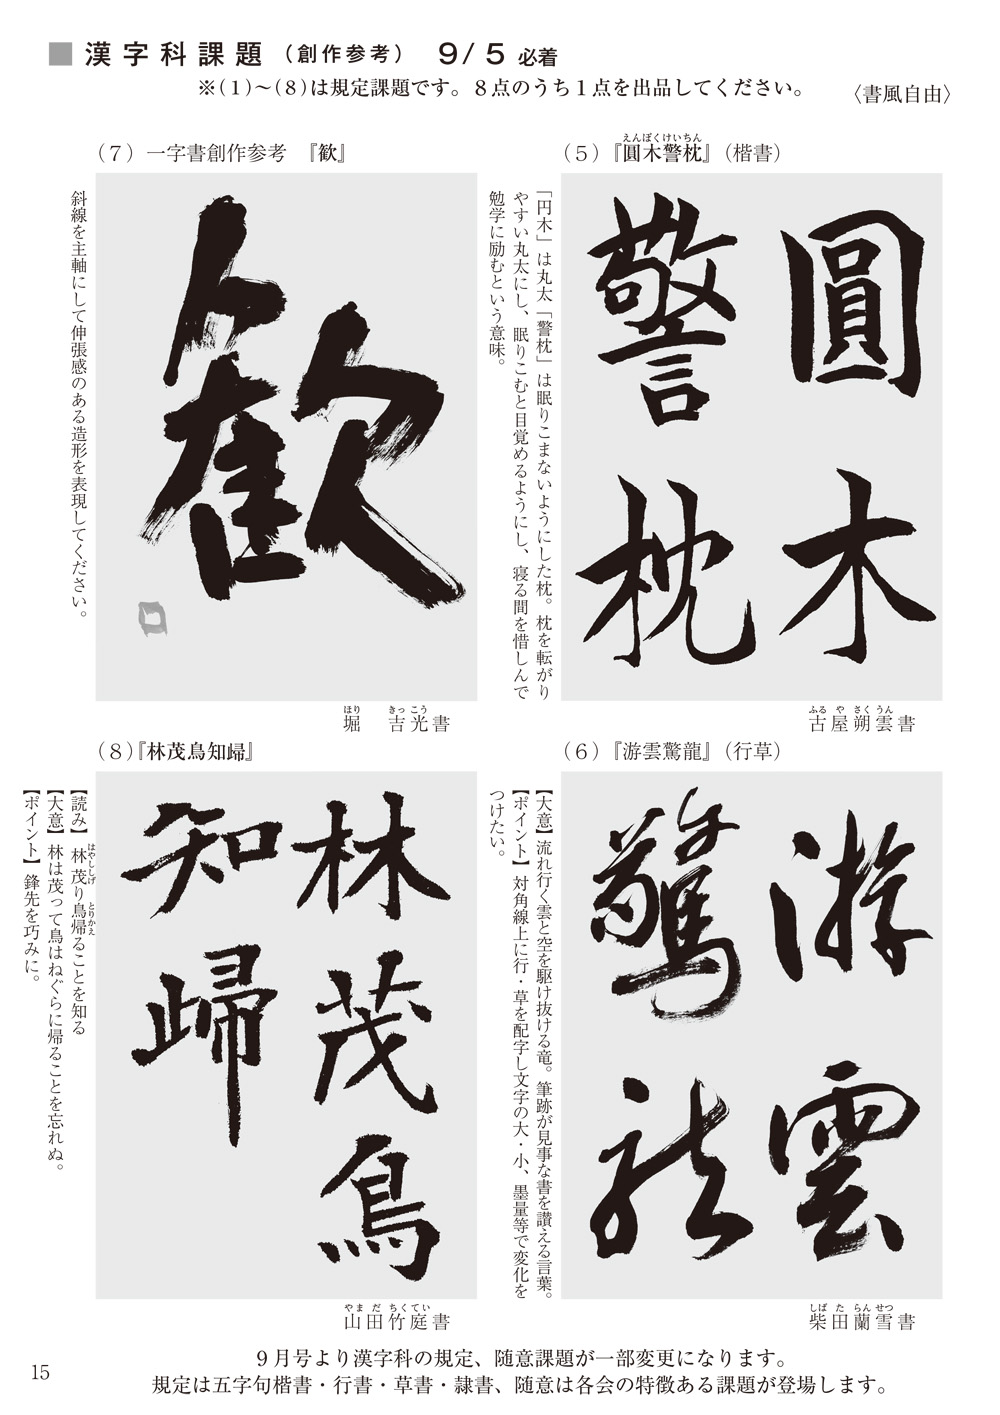 ■漢字科課題（創作参考） 9/5必着
※(1)～(8)は規定課題です。８点のうち１点を出品してください。
〈書風自由〉
（5）『圓木警枕』（楷書）
えんぼくけいちん
圓木
警枕
「円木」は丸太「警枕」は眠りこまないようにした枕。枕を転がり
やすい丸太にし、眠りこむと目覚めるようにし、寝る間を惜しんで
勉学に励むという意味。
ふる や さく うん
古屋朔雲書
（6）『游雲驚龍』（行草）
游雲
驚龍
【大意】流れ行く雲と空を駆け抜ける竜。筆跡が見事な書を讃える言葉。
【ポイント】対角線上に行・草を配字し文字の大・小、墨量等で変化を
つけたい。
しば た らん せつ
柴田蘭雪書
（7）一字書創作参考 『歓』
歓
斜線を主軸にして伸張感のある造形を表現してください。
ほり きっ こう
堀 吉光書
（8）『林茂鳥知歸』
林茂鳥
知歸
【読み】林茂り鳥帰ることを知る
はやししげ とりかえ
【大意】林は茂って鳥はねぐらに帰ることを忘れぬ。
【ポイント】鋒先を巧みに。
やま だ ちく てい
山田竹庭書
９月号より漢字科の規定、随意課題が一部変更になります。
規定は五字句楷書・行書・草書・隷書、随意は各会の特徴ある課題が登場します。
15